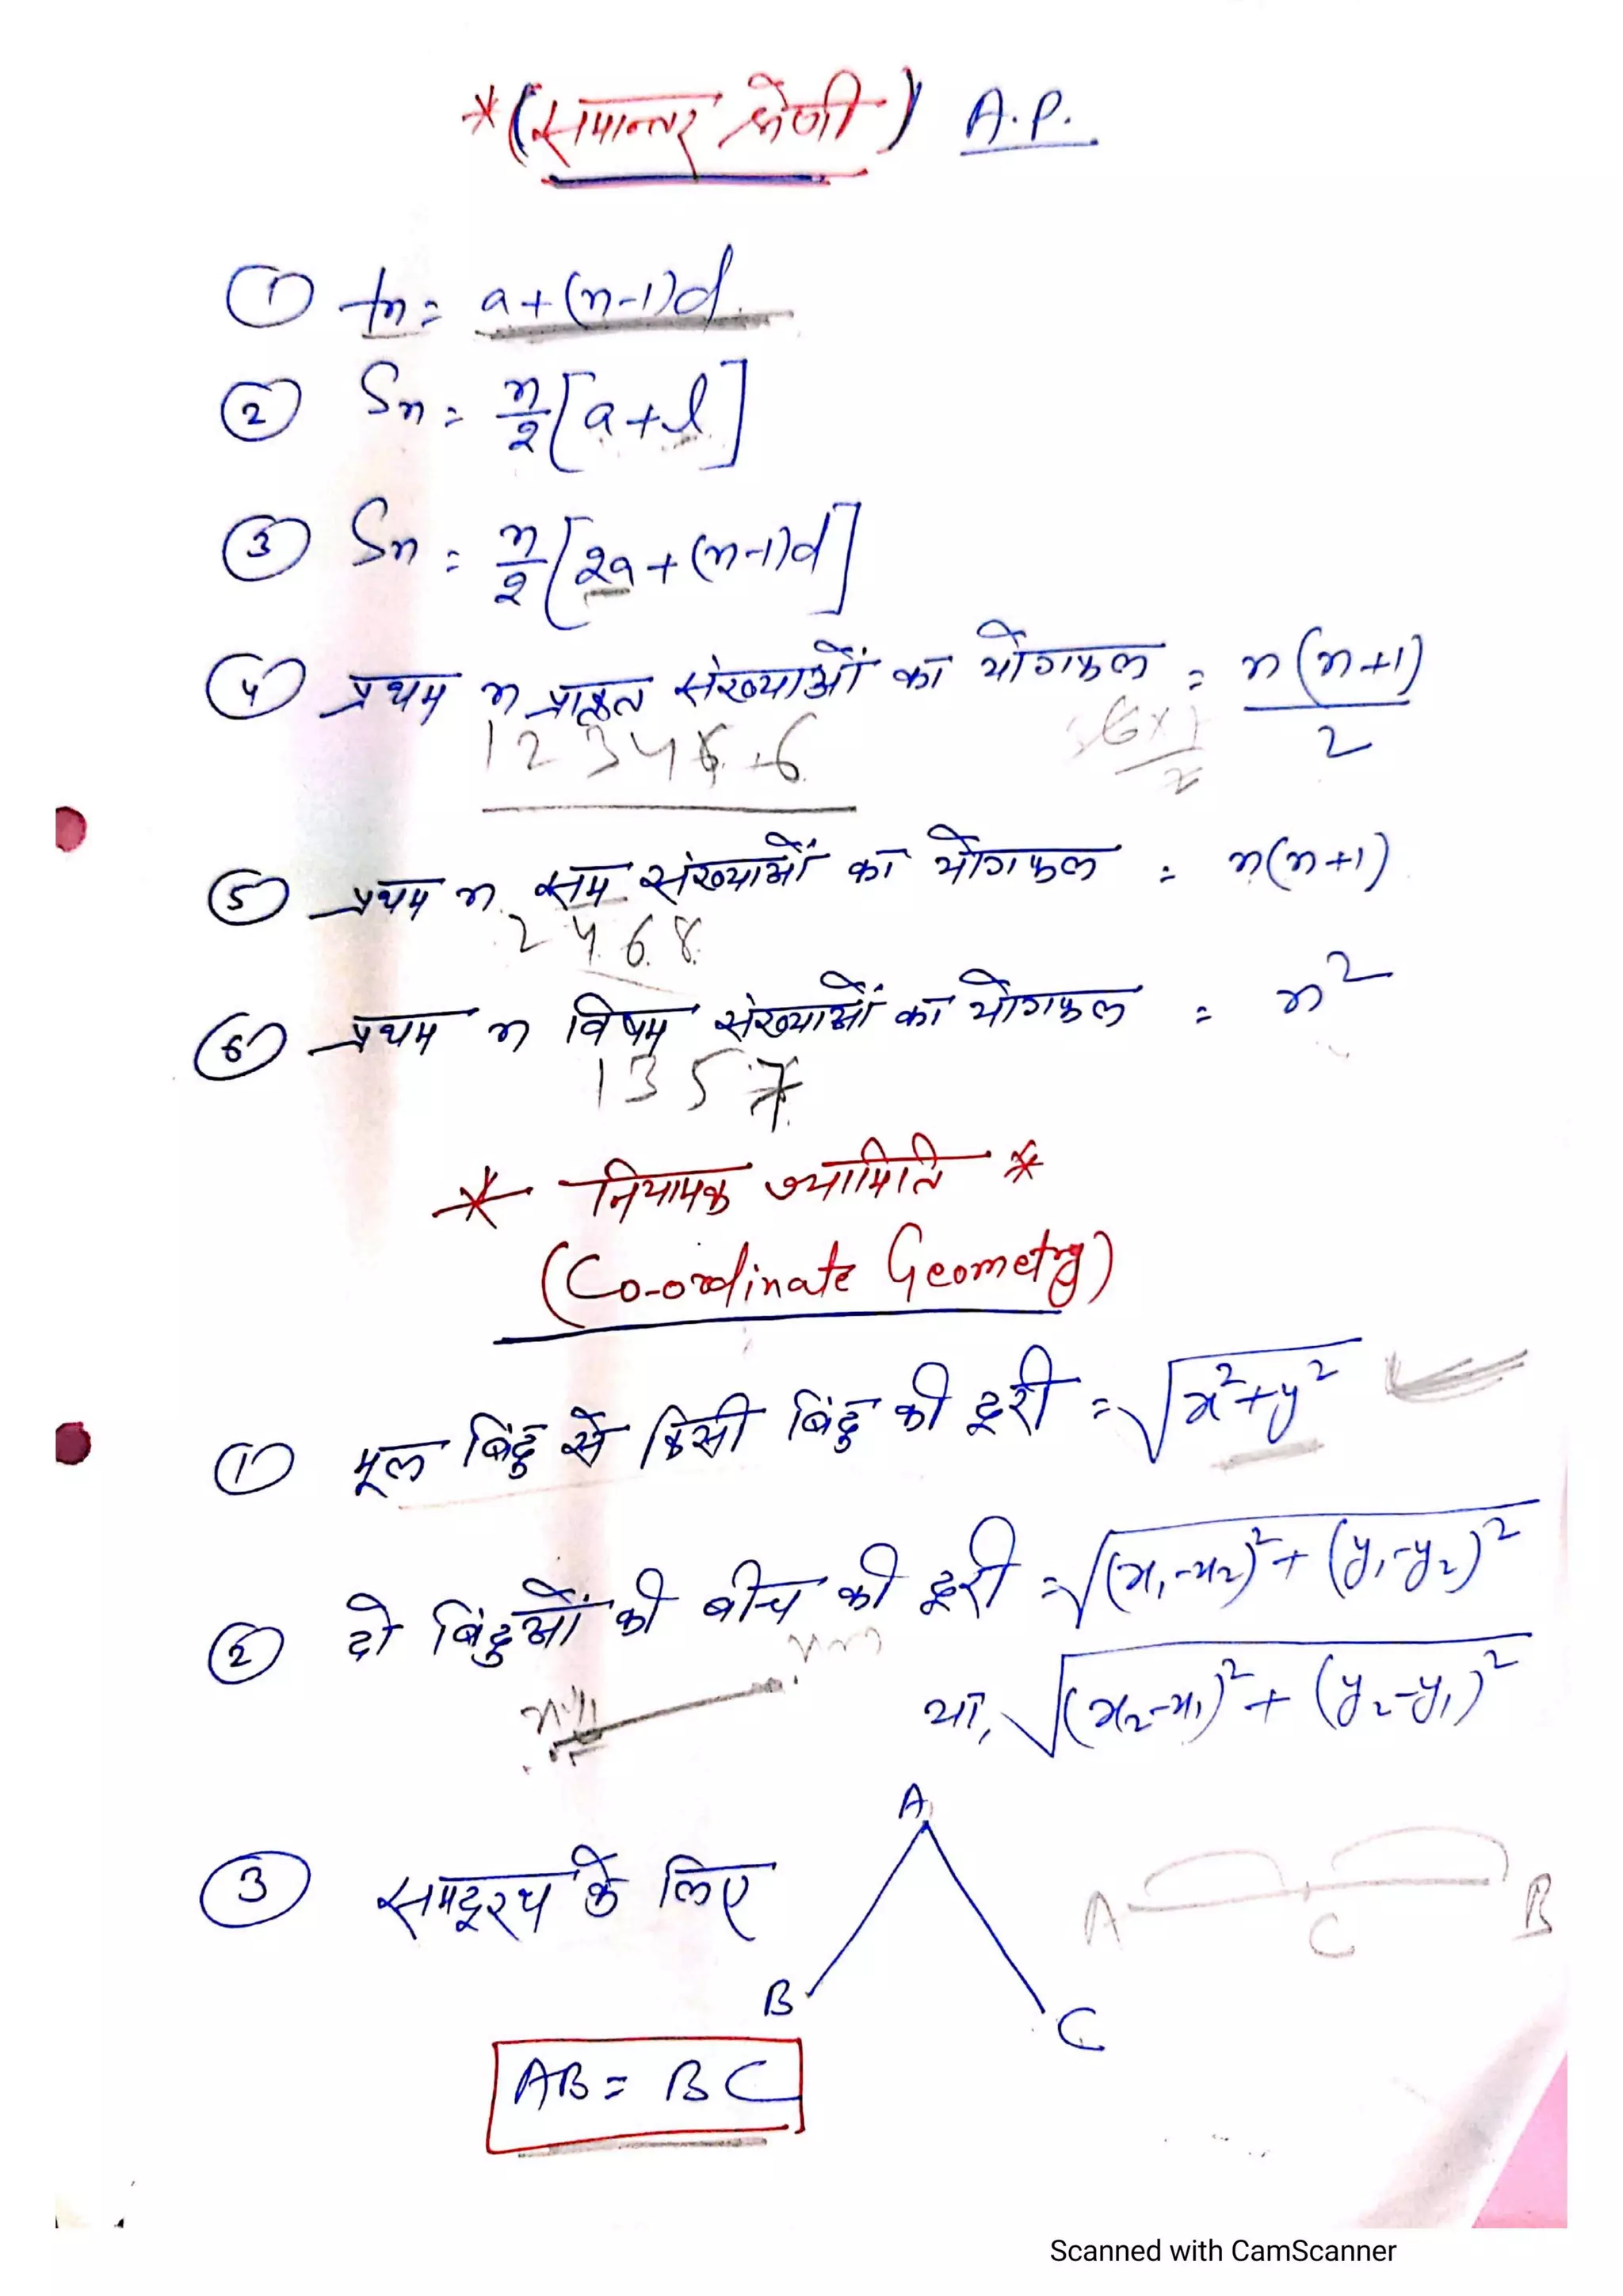 *(समान्तर श्रेणी) A.P.
① tn = a+(n-1)d
② Sn = n/2[a+l]
③ Sn = n/2[2a+(n-1)d]
④ प्रथम n प्राकृत संख्याओं का योगफल = n(n+1)/2
1 2 3 4 5 6
⑤ प्रथम n सम संख्याओं का योगफल = n(n+1)
2 4 6 8
⑥ प्रथम n विषम संख्याओं का योगफल = n²
1 3 5 7
* नियामक ज्यामिति *
(Co-ordinate Geometry)
① मूल बिंदु से किसी बिंदु की दूरी = √x²+y²
② दो बिंदुओं की बीच की दूरी = √(x₁-x₂)²+(y₁-y₂)²
या, √(x₂-x₁)²+(y₂-y₁)²
③ समदूरस्थ के लिए
A
B
C
A C B
AB = BC
Scanned with CamScanner